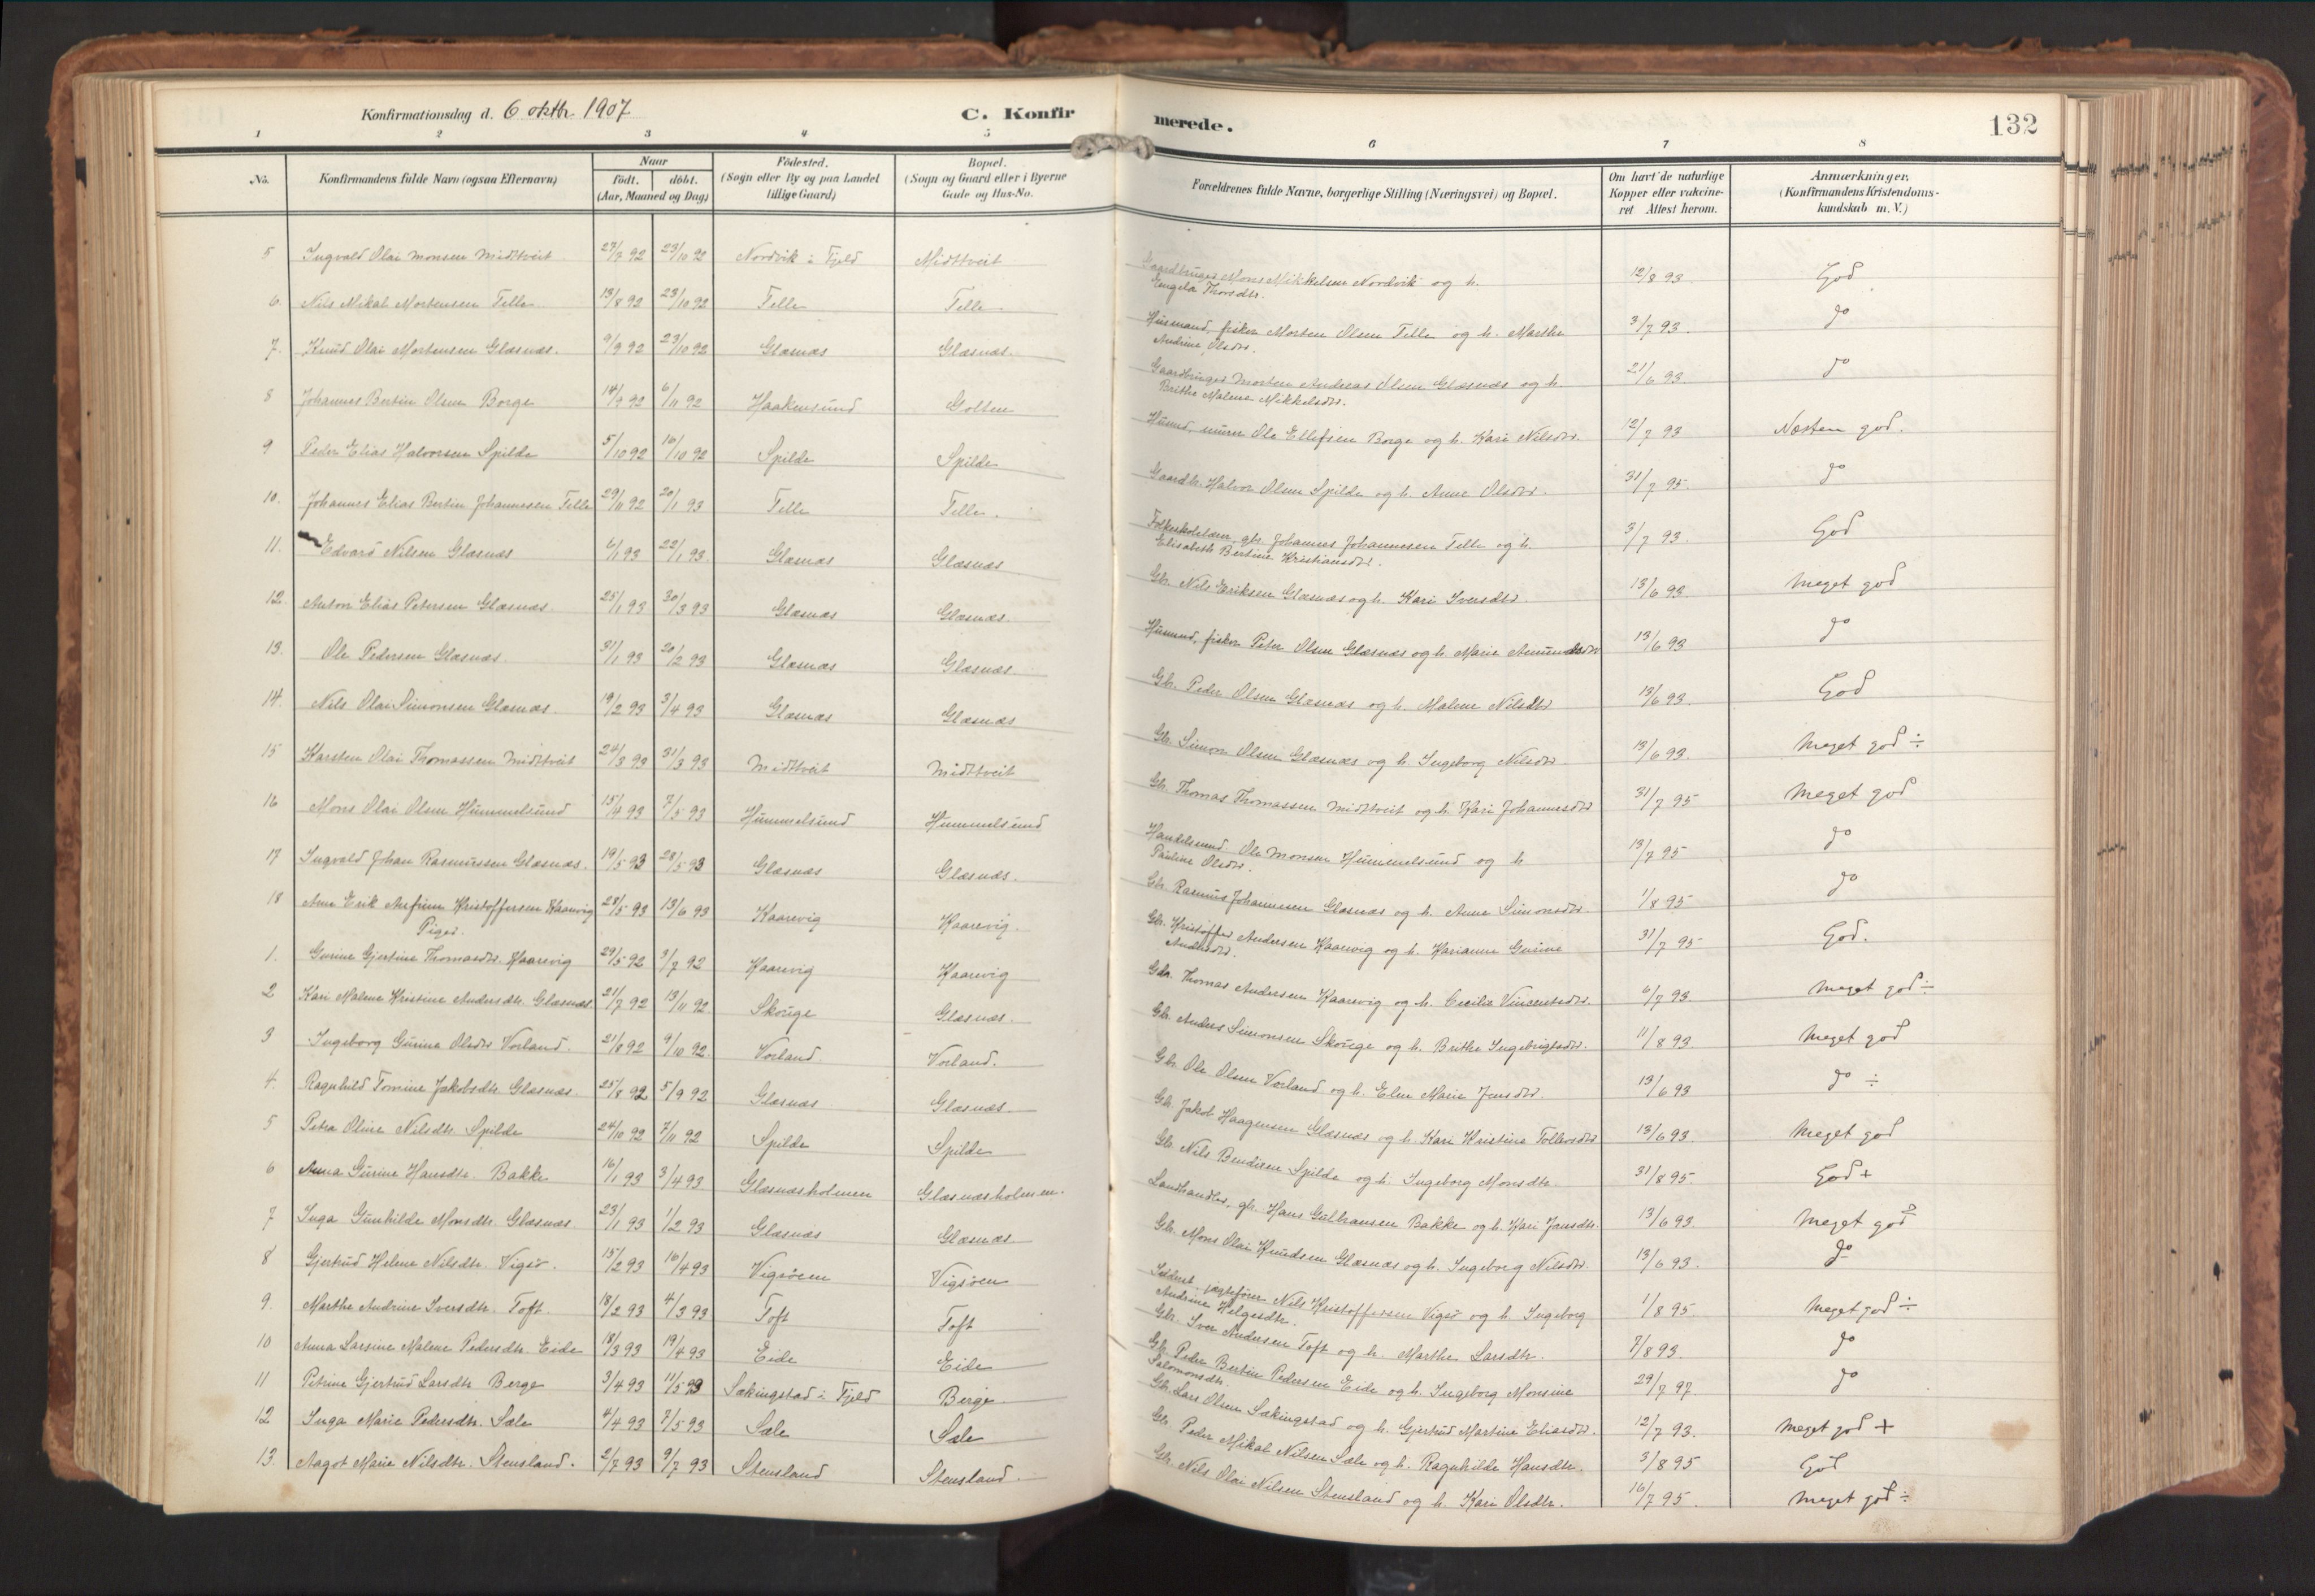 Konfirmationsdag d. 6 oktbr. 1907
C. Konfirmerede.
132
1 2 3 4 5 6 7 8
No.
Konfirmandens fulde Navn (ogsaa Efternavn)
Naar
født. døbt.
(Aar, Maaned og Dag)
Fødested.
(Sogn eller By og paa Landet
tillige Gaard)
Bopæl.
(Sogn og Gaard eller i Byerne
Gade og Hus-No.
Forældrenes fulde Navne, borgerlige Stilling (Næringsvei) og Bopæl.
Om havt de naturlige
Kopper eller vakcine-
ret Attest herom.
Anmærkninger.
(Konfirmandens Kristendoms-
kundskab m. V.)
5 Ingvald Olai Monsen Midttveit 27/7 92 23/10 92 Nordvik i Fjeld Midttveit Gaardbruger Mons Mikkelsen Nordvik og h. 12/8 93 God
Engela Thorsdtr.
6. Nils Mikal Mortensen Telle 13/8 92 23/10 92 Telle Telle Husmand, fisker Morten Olsen Telle og h. Marthe 3/7 93. do
Andrine Olsdtr.
7. Knud Olai Mortensen Glæsnæs. 9/9 92 23/10 92 Glæsnæs Glæsnæs. Gaardbruger Morten Andreas Olsen Glæsnæs og h. 21/6 93 do
Brithe Malene Mikkelsdtr.
8 Johannes Bertin Olsen Borge 14/9 92 6/11 92 Haakensund Golten Husmd, murer Ole Ellefsen Borge og h. Kari Nilsdtr. 12/7 93 Næsten god.
9 Peder Elias Halvorsen Spilde 5/10 92 16/10 92 Spilde Spilde Gaardb. Halvor Olsen Spilde og h. Anne Olsdtr. 31/7 95. do
10. Johannes Elias Bertin Johannesen Telle 29/11 92 20/1 93 Telle Telle. Folkeskolelærer, gbr. Johannes Johannesen Telle og h. 3/7 93. God
Elisabeth Bertine Kristiansdtr.
11. Edvard Nilsen Glæsnæs 6/1 93 22/1 93. Glæsnæs Glæsnæs Gbr. Nils Eriksen Glæsnæs og h. Kari Iversdtr. 13/6 93 Meget god
12. Anton Elias Petersen Glæsnæs 25/1 93 30/3 93 Glæsnæs Glæsnæs. Husmd, fisker Peter Olsen Glæsnæs og h. Marie Amundsdtr 13/6 93 do
13. Ole Pedersen Glæsnæs. 31/1 93 20/2 93 Glæsnæs Glæsnæs. Gb. Peder Olsen Glæsnæs og h. Malene Nilsdtr 13/6 93. God
14. Nils Olai Simonsen Glæsnæs. 19/2 93 3/4 93 Glæsnæs Glæsnæs Gb. Simon Olsen Glæsnæs og h. Ingeborg Nilsdtr 13/6 93. Meget god ÷
15 Karsten Olai Thomassen Midttveit 24/3 93 31/3 93 Midttveit Midttveit Gb. Thomas Thomassen Midttveit og h. Kari Johannesdtr 31/7 95 Meget god
16 Mons Olai Olsen Hummelsund 15/4 93 7/5 93 Hummelsund Hummelsund Handelsmd Ole Monsen Hummelsund og h 13/7 95 do
Pauline Olsdtr.
17 Ingvald Johan Rasmussen Glæsnæs. 19/5 93 28/5 93 Glæsnæs Glæsnæs. Gb. Rasmus Johannesen Glæsnæs og h. Anne Simonsdtr. 1/8 95 do
18 Erik Kristoffersen Kaarevig 28/5 93 13/6 93 Kaarevig Kaarevig. Gbr. Kristoffer Andersen Kaarevig og h. Marianne Gurine 31/7 95 God.
Andersdtr.
Piger.
1. Gurine Gjertine Thomasdtr. Kaarevig 29/5 92 3/7 92 Kaarevig Kaarevig Gdr. Thomas Andersen Kaarevig og h. Cecilie Vincentsdtr. 6/7 93. Meget god ÷
2 Kari Malene Kristine Andersdtr. Glæsnæs. 21/7 92 13/11 92 Skouge Glæsnæs. Gb. Anders Simonsen Skouge og h. Brithe Ingebrigtsdtr. 11/8 93 Meget god
3 Ingeborg Gurine Olsdtr Vorland. 21/8 92 9/10 92. Vorland Vorland. Gb. Ole Olsen Vorland og h. Elen Marie Jensdtr. 13/6 93 do ÷
4. Ragnhild Tomine Jakobsdtr. Glæsnæs. 25/8 92 5/9 92 Glæsnæs Glæsnæs Gb. Jakob Haagensen Glæsnæs og h. Kari Kristine Tollevsdtr 13/6 93. Meget god
5 Petra Oline Nilsdtr. Spilde 24/10 92 7/11 92 Spilde Spilde Gb. Nils Bendixen Spilde og h. Ingeborg Monsdtr. 31/8 95 God +
6 Anna Gurine Hansdtr Bakke 16/1 93 3/4 93 Glæsnæsholmen Glæsnæsholmen. Landhandler, gb. Hans Gulhansen Bakke og h. Kari Jansdtr. 13/6 93. Meget god
7 Inga Gunhilde Monsdtr. Glæsnæs. 23/1 93 1/2 93 Glæsnæs Glæsnæs Gb. Mons Olai Knudsen Glæsnæs og h. Ingeborg Nilsdtr. 13/6 93. do
8 Gjertrud Helene Nilsdtr. Vigsø. 15/2 93 16/4 93 Vigsøen Vigsøen jægtefører Nils Kristoffersen Vigsø og h. Ingeborg 1/8 95. Meget god ÷
Andrine Helgesdtr.
9. Marthe Andrine Iversdtr. Toft. 18/2 93 4/3 93 Toft Toft Gbr. Iver Andersen Toft og h. Marthe Larsdtr. 7/8 93. do
10 Anna Larsine Malene Pedersdtr. Eide 18/3 93 19/4 93 Eide Eide Gb. Peder Bertin Pedersen Eide og h. Ingeborg Monsine 29/7 97. do
Salomonsdtr.
11 Petrine Gjertrud Larsdtr Berge 3/4 93 11/5 93 Sækingstad i Fjeld Berge Gb. Lars Olsen Sækingstad og h. Gjertrud Martine Eliasdtr. 12/7 93. Meget god +
12 Inga Marie Pedersdtr. Sæle 4/4 93 7/5 93 Sæle Sæle Gb. Peder Mikal Nilsen Sæle og h. Ragnhilde Hansdtr. 3/8 95 God
13. Aagot Marie Nilsdtr. Stensland. 2/7 93 9/7 93 Stensland Stensland. Gb. Nils Olai Nilsen Stensland og h. Kari Olsdtr. 16/7 95. Meget god ÷